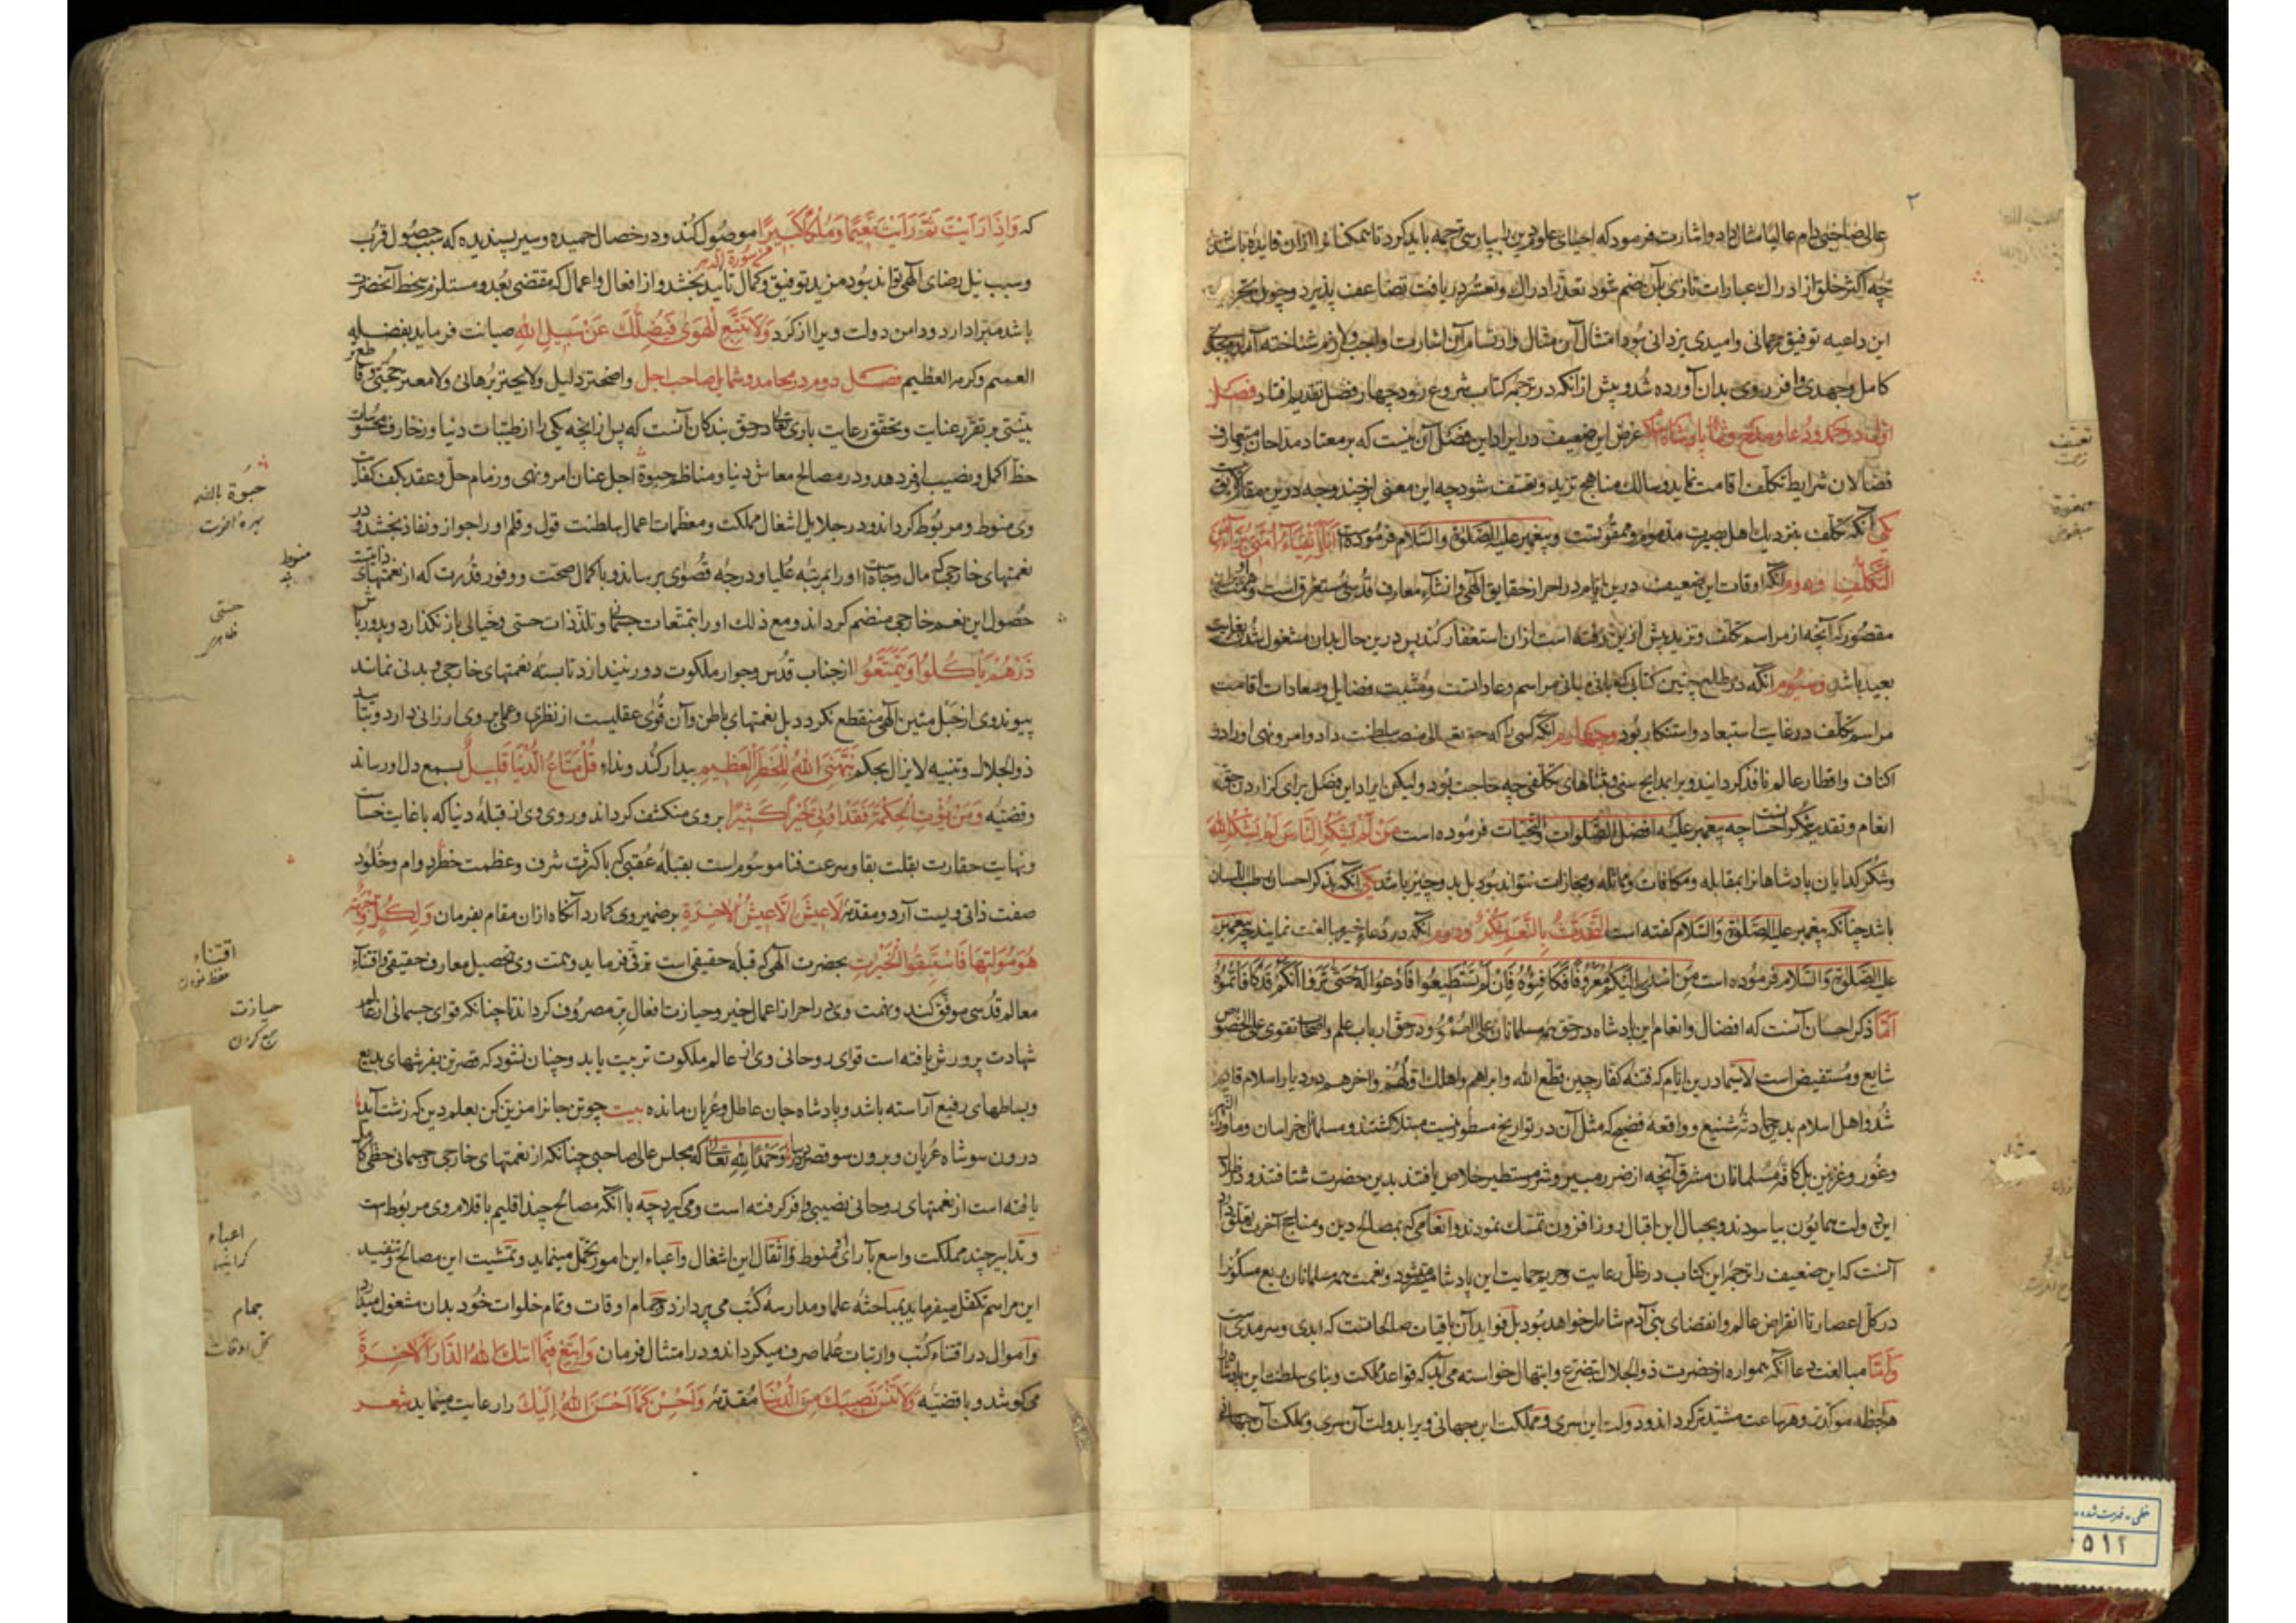 ٢
عالی صاحبی دام عالیا مثال داد و اشارت فرمود که احیای علوم دین را بپارسی ترجمه باید کرد تا همکنانرا ازان فایده باشد
چه اکثر خلق از ادراک عبارات تازی بآن ضم شود تعذر ادراک و تعسر دریافت تضاعف پذیرد و چون
این داعیه توفیق رحمانی و امیدی یزدانی بود امتثال آن مثال و ارتسام آن اشارت واجب و لازم شناخته آمد و
کامل و جهدی وافر روی بدان آورده شد و پیش از آنکه در ترجمه کتاب شروع رود چهار فصل تقدیم افتاد فصل
اول در حمد و دعا و مدح و ثنا پادشاه غرض این ضعیف در ایراد این فصل آن نیست که بر معتاد مداحان متعارف
فضالان شرایط تکلف اقامت نماید و سالک مناهج تزید و تعسف شود چه این معنی از چند وجه درین مقام لایق
یکی آنکه تکلف بنزدیک اهل بصیرت مذموم و ممقوتست و پیغمبر علیه الصلوة والسلام فرموده است انا و اتقیاء امتی برآء من
التکلف و دوم آنکه اوقات این ضعیف درین ایام در احراز حقایق الهی و انشاء معارف قدسی مستغرق است و
مقصور که آنچه از مراسم تکلف و تزید پیش ازین رفته است ازان استغفار کند پس درین حال بدان مشغول شدن بغایت
بعید باشد و سیوم آنکه در مطلع چنین کتاب که بانی مبانی مراسم و عادانست و مثبت فضایل و سعادات اقامت
مراسم تکلف در غایت استبعاد و استنکار بود و چهارم آنکه کسی را که حق تعالی منصب سلطنت داد و امر و نهی او را در
اکناف و اقطار عالم نافذ گردانید ویرا بمدایح سنی و ثناهای تکلفی چه حاجت بود ولیکن ایراد این فصل برای گزاردن حق
انعام و تقدیم شکر احسانست چه پیغمبر علیه افضل الصلوات والتحیات فرموده است من لم یشکر الناس لم یشکر الله
و شکر گدایان پادشاهانرا بمقابله و مکافات و مماثله و مجازات نتواند بود بل بدو چیز باشد یکی آنکه بذکر احسان رطب اللسان
باشد چنانکه پیغمبر علیه الصلوة والسلام گفته است التحدث بالنعم شکر و دوم آنکه در دعاء خیر مبالغت نمایند چه پیغمبر
علیه الصلوة والسلام فرموده است من اسدی الیکم معروفا فکافئوه فان لم تستطیعوا فادعوا له حتی تروا انکم قد کافأتموه
اما ذکر احسان آنست که افضال و انعام این پادشاه در حق همه مسلمانان علی العموم و در حق ارباب علم و اصحاب تقوی علی الخصوص
شایع و مستفیض است لا سیما درین ایام که فتنه کفار چین قطع الله دابرهم و اهلک اولهم و آخرهم در دیار اسلام قایم
شد و اهل اسلام بدین حادثه شنیع و واقعه فضیع که مثل آن در تواریخ مسطور نیست مبتلا گشتند و مسلمانان خراسان و ماوراء النهر
و غور و غزنین بل کافه مسلمانان مشرق آنچه از ضرر مبیر و شر مستطیر خلاص یافتند بدین حضرت شتافتند و در ظل
این دولت همایون بیاسودند و بحبال این اقبال روزافزون تمسک نمودند و انعامی که بمصالح دین و مناجح آخرت تعلق دارد
آنست که این ضعیف را ترجمه این کتاب در ظل رعایت و حریم حمایت این پادشاه میسر شود و نعمت همه مسلمانان ربع مسکونرا
در کل اعصار تا انقراض عالم و انقضای بنی آدم شامل خواهد بود بل فواید آن باقیات صالحاتست که ابدی و سرمدی است
و اما مبالغت دعا آنکه همواره از حضرت ذوالجلال بتضرع و ابتهال خواسته می آید که قواعد مملکت و بنای سلطنت این پادشاه
هر لحظه موکدتر و هر ساعت مشیدتر گرداند و دولت این سری و مملکت این جهانی ویرا بدولت آن سری و مملکت آن جهانی
تعسف
که وَاِذَا رَاَیْتَ ثَمَّ رَاَیْتَ نَعِیمًا وَمُلْکًا کَبِیرًا موصول کند و در خصال حمیده و سیر پسندیده که سبب حصول قرب
من سورة الدهر
و سبب نیل رضای الهی تواند بود مزید توفیق و کمال تأیید بخشد و از افعال و اعمال که مقتضی بعد و مستلزم سخط آنحضرت
باشد مبرا دارد و دامن دولت ویرا از گرد وَلَا تَتَّبِعِ الْهَوٰی فَیُضِلَّکَ عَنْ سَبِیلِ اللّٰهِ صیانت فرماید بفضله
العمیم و کرمه العظیم فصل دوم در محامد و شمایل صاحب اجل واضحتر دلیل و لایحتر برهانی و لامعتر حجتی و قاطعتر
بینتی بر تقرر عنایت و تحقق رعایت باری تعالی در حق بندگان آنست که پس از آنچه یکی را از طیبات دنیا و زخارف محسوسات
حظ اکمل و نصیب اوفر دهد و در مصالح معاش دنیا و مناظم حبوة اجل عنان امر و نهی و زمام حل و عقد بکف کفایت
وی منوط و مربوط گرداند و در جلایل اشغال مملکت و معظمات اعمال سلطنت قول و قلم او را جواز و نفاذ بخشد و در
نعمتهای خارجی که مال و جاه است او را بمرتبه علیا و درجه قصوی برساند و با کمال صحت و وفور قدرت که از نعمتهای ذاتیست
حصول این نعم خارجی منضم گرداند و مع ذلک او را بتمتعات جسمانی و تلذذات حسی و خیالی باز نگذارد و بدورباش
ذَرْهُمْ یَأْکُلُوا وَیَتَمَتَّعُوا از جناب قدس و جوار ملکوت دور نیندازد تا بسته نعمتهای خارجی و بدنی نماند
پیوند وی از حبل متین الهی منقطع نگردد بل نعمتهای باطن و آن قوای عقلیست از نظری و عملی بر وی ارزانی دارد و بتأیید
ذوالجلال و تنبیه لایزال بحکم نَبَّهَنِیَ اللّٰهُ لِلْخَطَرِ الْعَظِیمِ بیدار کند و نداء قُلْ مَتَاعُ الدُّنْیَا قَلِیلٌ بسمع دل او رساند
و قضیه وَمَنْ یُؤْتَ الْحِکْمَةَ فَقَدْ اُوتِیَ خَیْرًا کَثِیرًا بر وی منکشف گرداند و روی وی از قبله دنیا که با غایت خساست
و نهایت حقارت بقلت بقا و سرعت فنا موسوم است بقبله عقبی که با کثرت شرف و عظمت خطر دوام و خلود
صفت ذاتی ویست آرد و مقدمه لَا عَیْشَ اِلَّا عَیْشُ الْاٰخِرَةِ بر ضمیر وی گمارد آنگاه ازان مقام بفرمان وَلِکُلٍّ وِجْهَةٌ
هُوَ مُوَلِّیهَا فَاسْتَبِقُوا الْخَیْرَاتِ بحضرت الهی که قبله حقیقی است ترقی فرماید و همت وی بتحصیل معارف حقیقی و اقتناء
معالم قدسی موفق کند و نهمت وی در احراز اعمال خیر و حیازت افعال بر مصروف گرداند تا چنانکه قوای جسمانی از عالم
شهادت پرورش یافته است قوای روحانی وی از عالم ملکوت تربیت یابد و چنان نشود که قصر تن بفرشهای بدیع
و بساطهای رفیع آراسته باشد و پادشاه جان عاطل و عریان مانده بیت چو تن جانرا مزین کن بعلم دین که زشت آید
درون سو شاه عریان و برون سو قصر دیبا و حمدا لله تعالی که مجلس عالی صاحبی چنانکه از نعمتهای خارجی و جسمانی حظی کامل
یافته است از نعمتهای روحانی نصیبی وافر گرفته است و می گیرد چه با آنکه مصالح چند اقلیم باقلام وی مربوط است
و تدابیر چند مملکت واسع بآرای او منوط و اثقال این اشغال و اعباء این امور تحمل مینماید و تمشیت این مصالح و تنفیذ
این مراسم تکفل میفرماید بمباحثه علما و مدارسه کتب می پردازد و جمام اوقات و تمام خلوات خود بدان مشغول میدارد
و اموال در اقتناء کتب و ارتباب علما صرف میگرداند و در امتثال فرمان وَابْتَغِ فِیمَا اٰتٰیکَ اللّٰهُ الدَّارَ الْاٰخِرَةَ
می کوشد و با قضیه وَلَا تَنْسَ نَصِیبَکَ مِنَ الدُّنْیَا مقدمه وَاَحْسِنْ کَمَا اَحْسَنَ اللّٰهُ اِلَیْکَ را رعایت مینماید شعر
حبوة بالضم
منوط
حسی
ظاهر
اقتناء
حیازت
جمع کردن
اعباء
گرانیها
جمام
خطی - فهرست شده
٥١٢